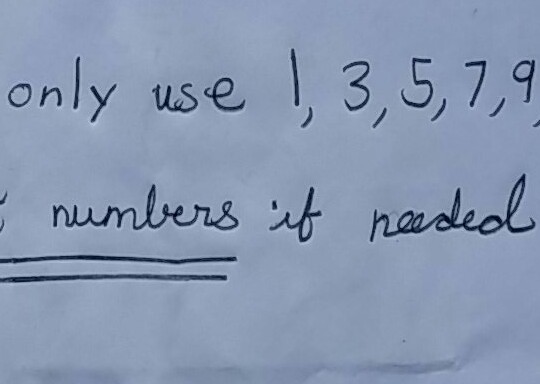 only use 1, 3, 5, 7, 9,
numbers if needed